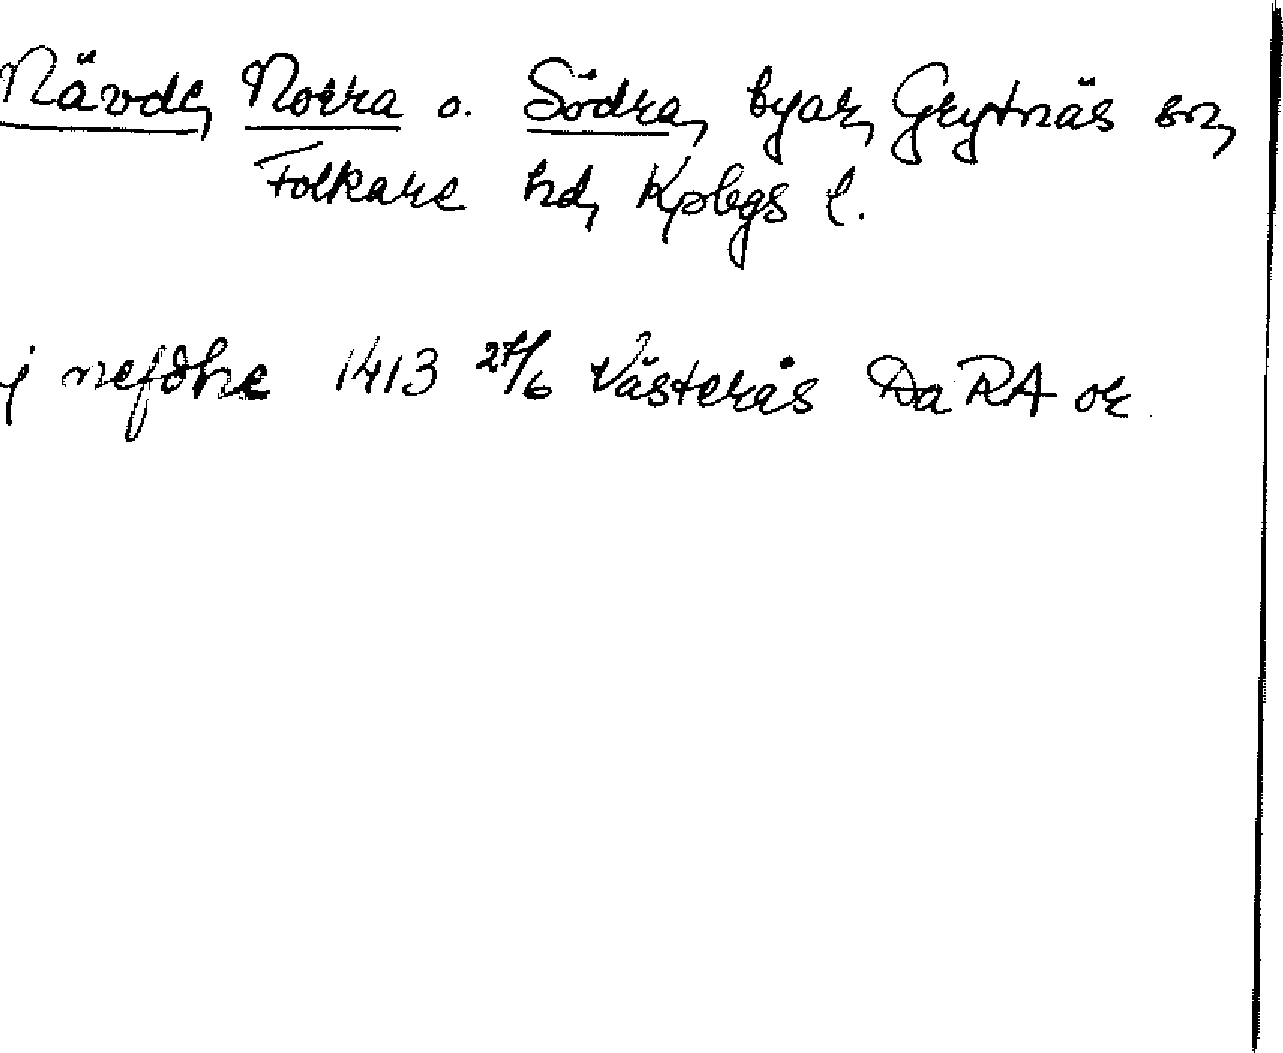 Nävde, Norra o. Södra, byar, Grytnäs sn,
Folkare hd, Kpbgs l.
j nefdhe 1413 27/6 Västerås Da RA or.